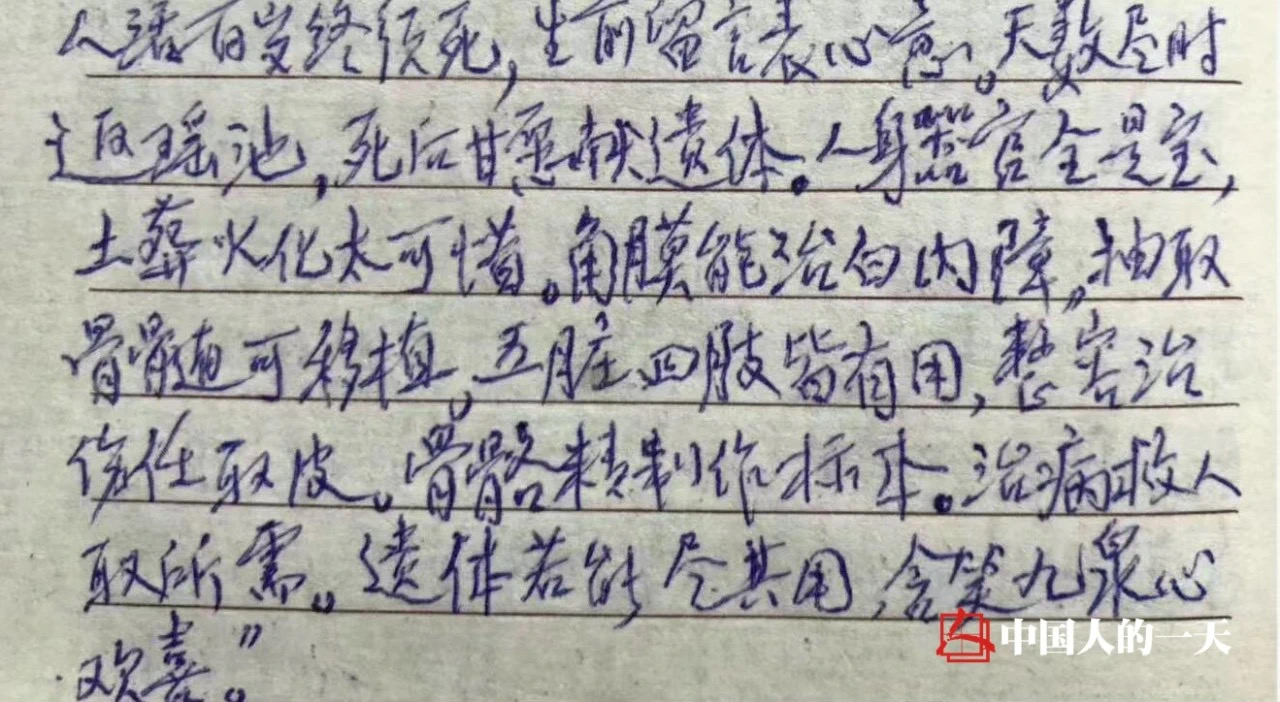 人活百岁终须死,生前留言表心意。天数尽时
返瑶池,死后甘愿献遗体。人身器官全是宝,
土葬火化太可惜。角膜能治白内障,抽取
骨髓可移植,五脏四肢皆有用,整容治
伤任取皮。骨骼精制作标本。治病救人
取所需。遗体若能尽其用,含笑九泉心
欢喜。”
中国人的一天